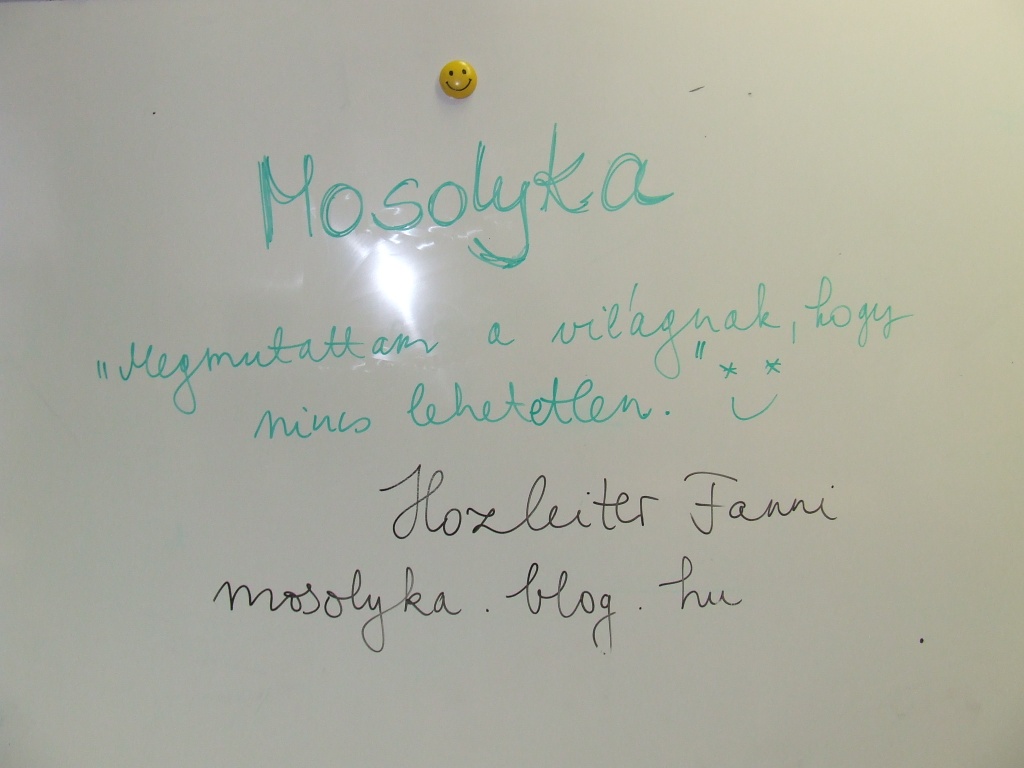 Mosolyka
"Megmutattam a világnak, hogy
nincs lehetetlen."
Hozleiter Fanni
mosolyka.blog.hu